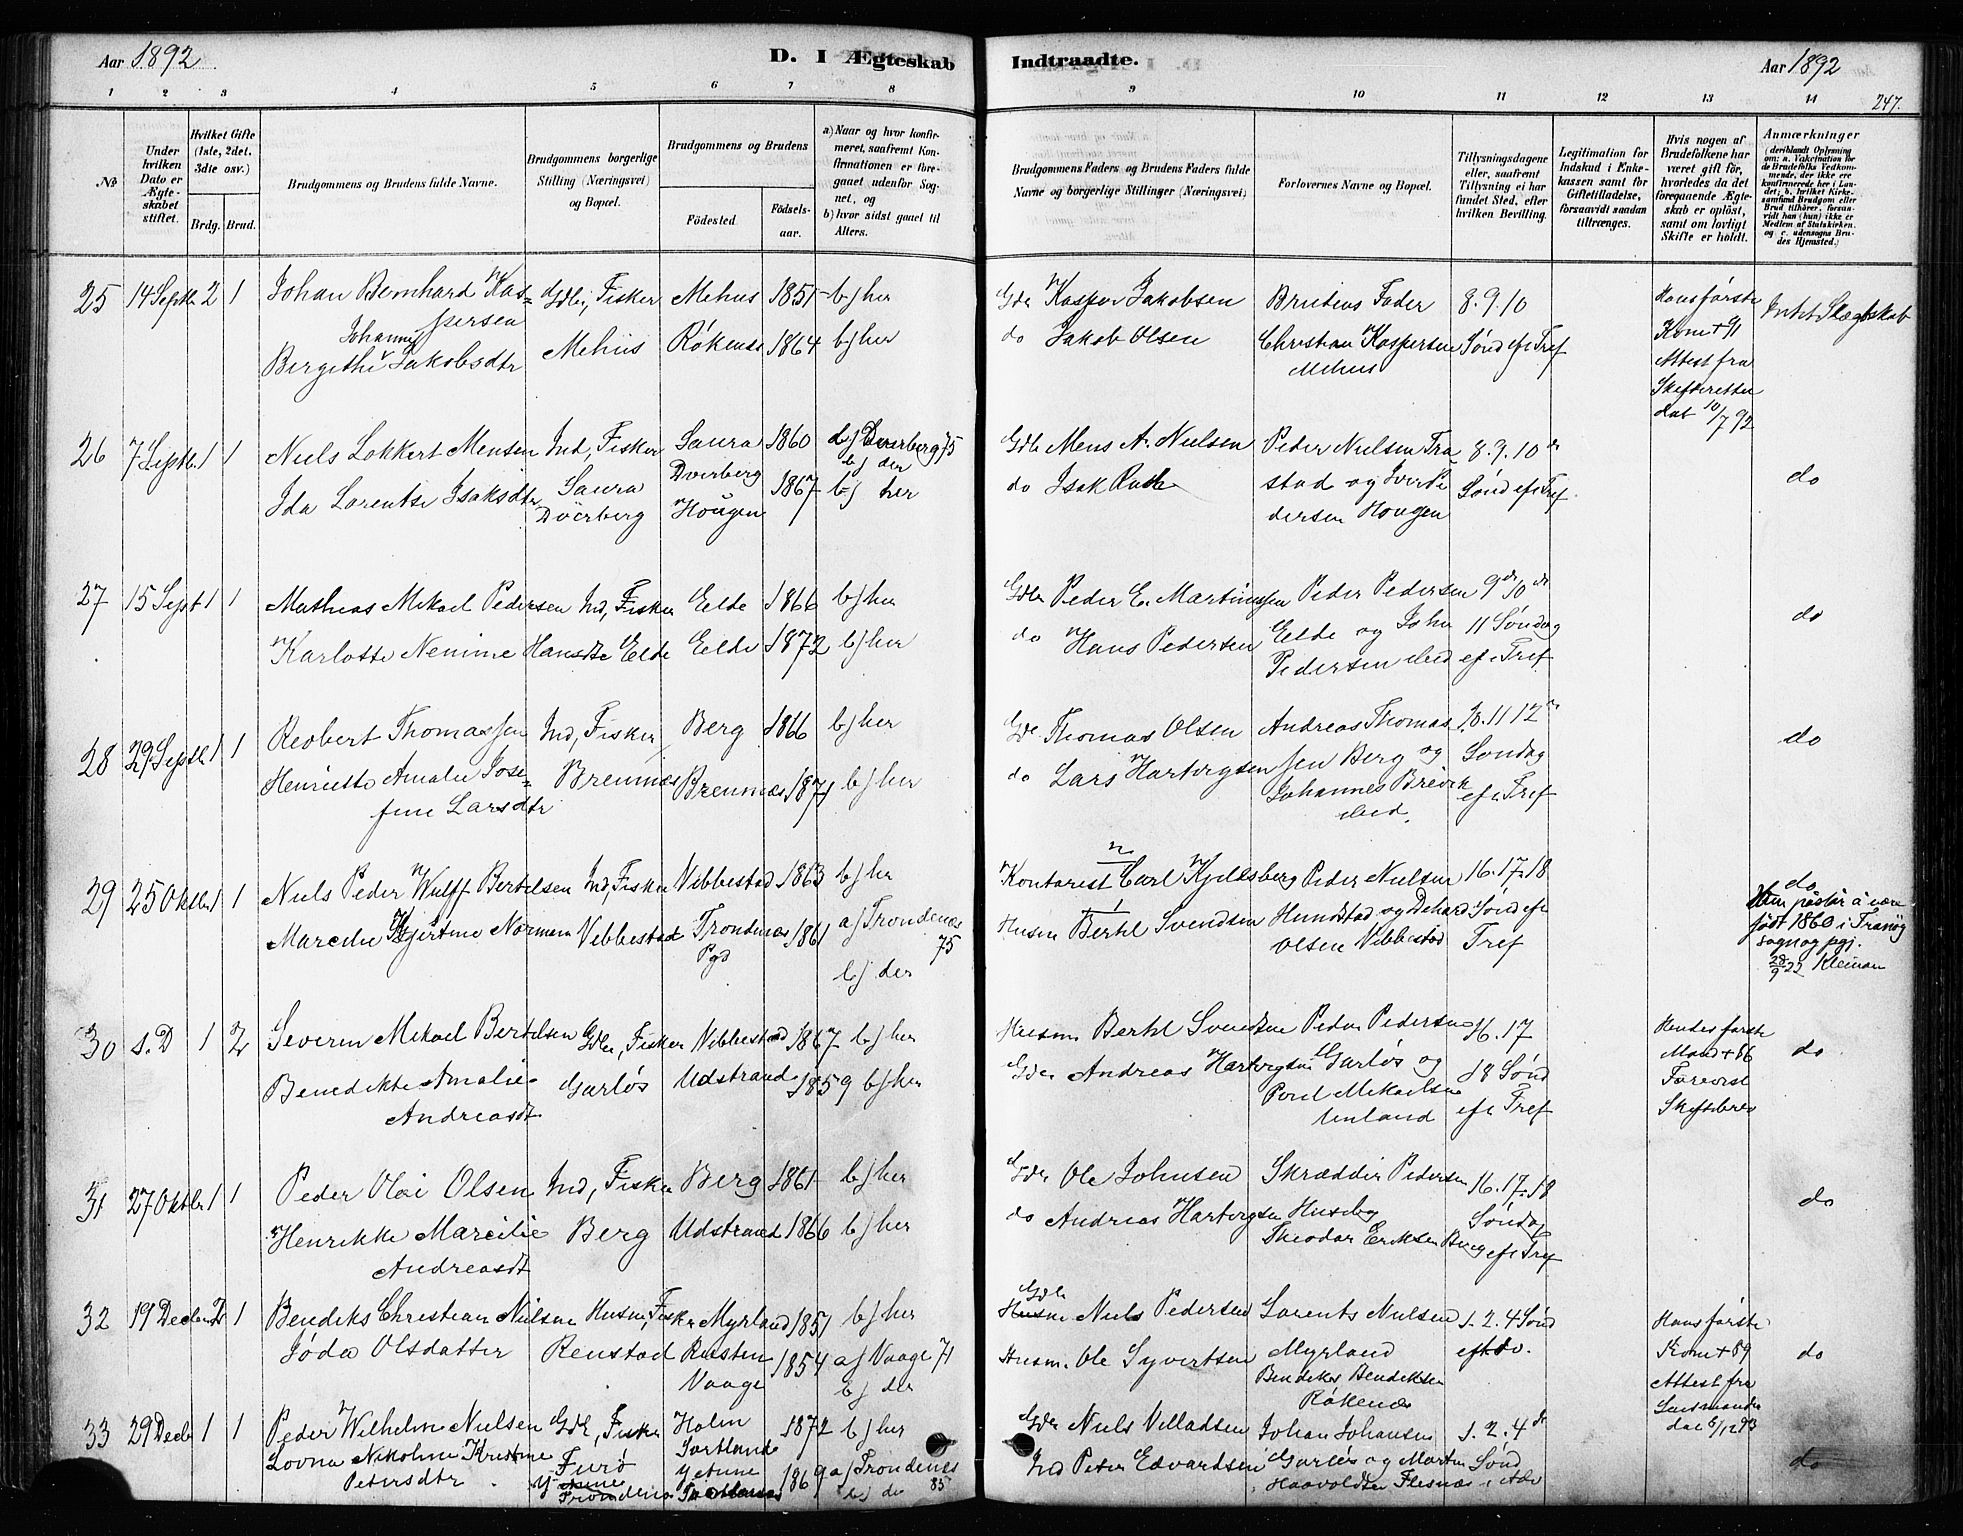 Aar 1892
D. I Ægteskab
Indtraadte.
Aar 1892
1 2 3 4 5 6 7 8
9 10 11 12 13 14
247.
No
Under hvilken Dato er Ægteskabet stiftet.
Hvilket Gifte (1ste, 2det, 3die osv.)
Brdg. Brud.
Brudgommens og Brudens fulde Navne.
Brudgommens borgerlige Stilling (Næringsvei) og Bopæl.
Brudgommens og Brudens
Fødested.
Fødselsaar.
a) Naar og hvor konfirmeret, saafremt Konfirmationen er foregaaet udenfor Sognet, og
b) hvor sidst gaaet til Alters.
Brudgommens Faders og Brudens Faders fulde Navne og borgerlige Stillinger (Næringsvei)
Forlovernes Navne og Bopæl.
Tillysningsdagene eller, saafremt Tillysning ei har fundet Sted, efter hvilken Bevilling.
Legitimation for Indskud i Enkekassen samt for Giftetilladelse, forsaavidt saadan tiltrænges.
Hvis nogen af Brudefolkene har været gift før, hvorledes da det foregaaende Ægteskab er opløst, samt om lovligt Skifte er holdt.
Anmærkninger
(deriblandt Oplysning om: a. Vakcination for de Brudefolks Vedkommende, der ikke ere konfirmerede her i Landet; b. hvilket Kirkesamfund Brudgom eller Brud tilhører, forsaavidt han (hun) ikke er Medlem af Statskirken, og c. udensogns Brudes Hjemsted.)
25 14 Septb 2 1 Johan Bernhard Kaspersen Gdbr, Fisker Mehus 1851 b) her
Johanne Bergithe Jakobsdtr Mehus Røkenæs 1864 b) her
Gdbr Kasper Jakobsen Brudens Fader 8.9.10
do Jakob Olsen Christian Kaspersen Mehus Sønd ef Tref
Hans første Kone + 91 Attest fra Skifteretten dat 10/7 92
Intet Slægtskab
26 7 Septb. 1 1 Niels Lokkert Mensen Ind, Fisker Saura Dverberg 1860 a) Dverberg 75 b) der
Ida Lorentse Isaksdtr Saura Dverberg Hougen 1867 b) her
Gdbr Mens A. Nielsen Peder Nielsen
do Isak og Iver Pedersen Hougen
8.9.10 Sønd ef Tref
do
27 15 Sept 1 1 Mathias Mikael Pedersen Ind, Fisker Elde 1866 b) her
Karlotte Hansdtr Elde Elde 1872 b) her
Gdbr Peder E. Martinussen Peder Pedersen 9 10
do Hans Pedersen Elde og John Pedersen ibid 11 Søndag ef Tref
do
28 29 Septb 1 1 Robert Thomassen Ind, Fisker Berg 1866 b) her
Henriette Amalie Josefine Larsdtr Bremnæs Bremnæs 1871 b) her
Gdbr Thomas Olsen Andreas Thomassen Berg og 10.11 12
do Lars Hartvigsen Johannes Brevik ibid. Søndag ef Tref
do
29 25 Oktbr 1 1 Niels Peder Wulff Bertelsen Ind, Fisker Vebbestad 1863 b) her
Marcelie Hjertine Normann Vebbestad Trondenæs Pgd 1861 a) Trondenæs 75 b) der
Kontorist Carl Kjellsberg Peder Nielsen 16.17.18
Husm Bertel Svendsen Hundstad og Olsen Vebbestad Sønd ef Tref
do
Hun påstår å være født 1860 i Tranøy sogn og pgj. 28/9 22
30 s.D 1 2 Severin Mikael Bertelsen Gdbr, Fisker Vebbestad 1867 b) her
Benedikte Amalie Andreasdt Gurløs Udstrand 1859 b) her
Husm Bertel Svendsen Peder Pedersen 16.17
Gdbr Andreas Hartvigsen Gurløs og Poul Mikaelsen 18 Sønd ef Tref
Hendes første Mand + 86
do
31 27 Oktbr 1 1 Peder Olai Olsen Ind, Fisker Berg 1861 b) her
Henrikke Marcelie Andreasdt Berg Udstrand 1866 b) her
Gdbr Ole Johnsen Skrædder Pedersen 16.17.18
do Andreas Hartvigsen Huseby Theodor Eriksen Berg Søndag ef Tref
do
32 19 Decbr 2 1 Bendiks Christian Nielsen Husm, Fisker Myrland 1851 b) her
Jøda Olsdatter Renstad Vaage 1854 a) Vaage 71 b) der
Gdbr Niels Pedersen Lorents Nielsen 1.2.4 Sønd
Husm. Ole Syvertsen Myrland Bendiks Bendiksen Røkenæs
Hans første Kone + 89 Attest fra Lensmanden
do
33 29 Decb 1 1 Peder Wilhelm Nielsen Gdbr, Fisker Holm Sortland 1872 b) her
Lovna Nikoline Kristine Petersdtr Trondenæs 1869 a) Trondenæs 85 b) do
Gdbr Niels Villadsen Johan Johansen 1.2.4
Ind Peter Edvardsen Gurløs og Morten Haavoldsen Flesnæs Sønd i Adv
do